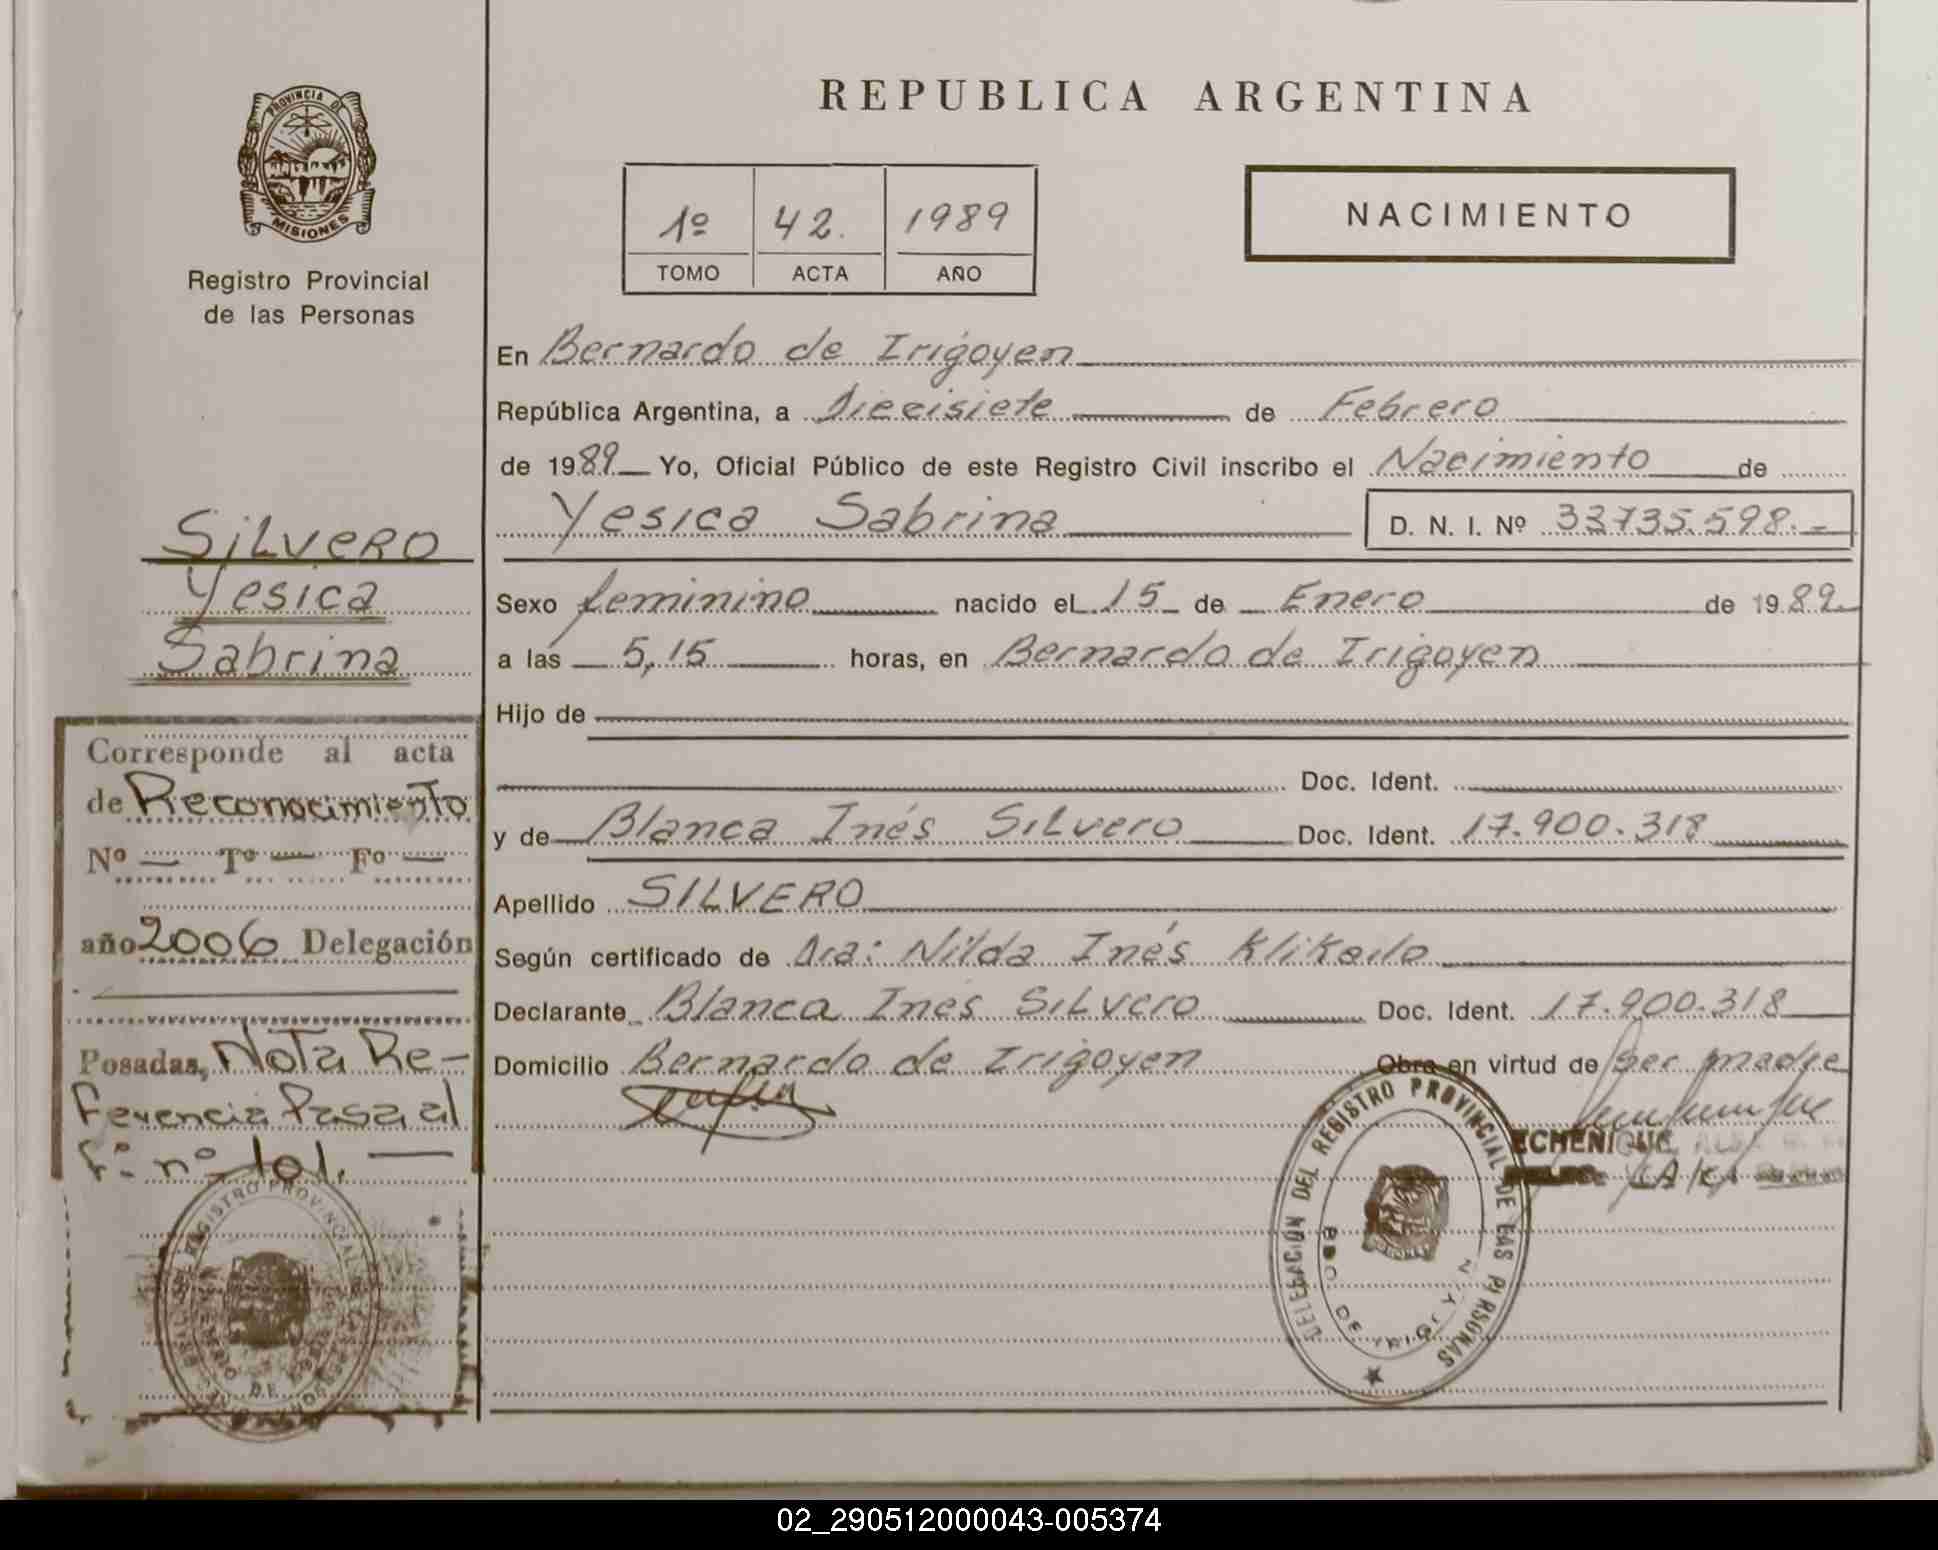 REPUBLICA ARGENTINA
PROVINCIA DE
MISIONES
Registro Provincial
de las Personas
1º 42. 1989
TOMO ACTA AÑO
NACIMIENTO
En Bernardo de Irigoyen
República Argentina, a Diecisiete de Febrero
de 1989 Yo, Oficial Público de este Registro Civil inscribo el Nacimiento de
Yesica Sabrina D. N. I. Nº 33735.598.-
Sexo femenino nacido el 15 de Enero de 1989
a las 5,15 horas, en Bernardo de Irigoyen
Hijo de
Doc. Ident.
y de Blanca Inés Silvero Doc. Ident. 17.900.318
Apellido SILVERO
Según certificado de Dra: Nilda Inés
Declarante Blanca Inés Silvero Doc. Ident. 17.900.318
Domicilio Bernardo de Irigoyen Obra en virtud de Ser madre
SILVERO
Yesica
Sabrina
Corresponde al acta
de Reconocimiento
Nº — Tº — Fº —
año 2006 Delegación
Posadas, Nota Re-
ferencia Pasa al
fº nº 101. —
ECHENIQUE
DELEGACION DEL REGISTRO PROVINCIAL DE LAS PERSONAS
BDO DE IRIGOYEN
REGISTRO PROVINCIAL
02_290512000043-005374